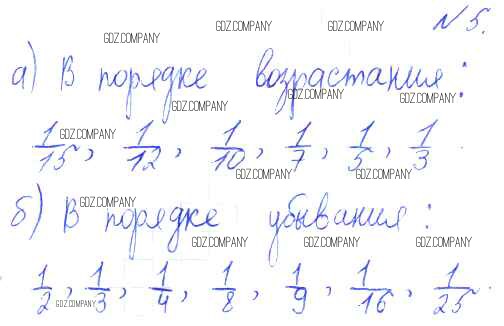 № 5.
GDZ.COMPANY GDZ.COMPANY GDZ.COMPANY
а) В порядке возрастания:
GDZ.COMPANY GDZ.COMPANY GDZ.COMPANY
GDZ.COMPANY
1/15, 1/12, 1/10, 1/7, 1/5, 1/3.
GDZ.COMPANY GDZ.COMPANY
GDZ.COMPANY
б) В порядке убывания:
GDZ.COMPANY GDZ.COMPANY GDZ.COMPANY
1/2, 1/3, 1/4, 1/8, 1/9, 1/16, 1/25.
GDZ.COMPANY